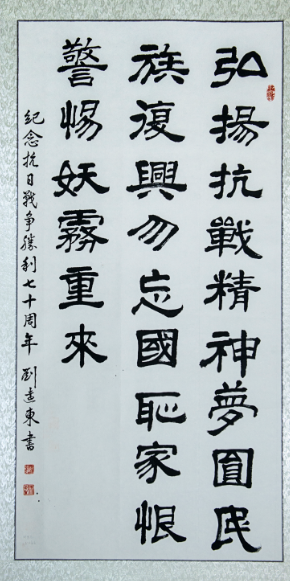 弘揚抗戰精神夢圓民
族復興勿忘國恥家恨
警惕妖霧重來
紀念抗日戰争勝利七十周年 劉建東書